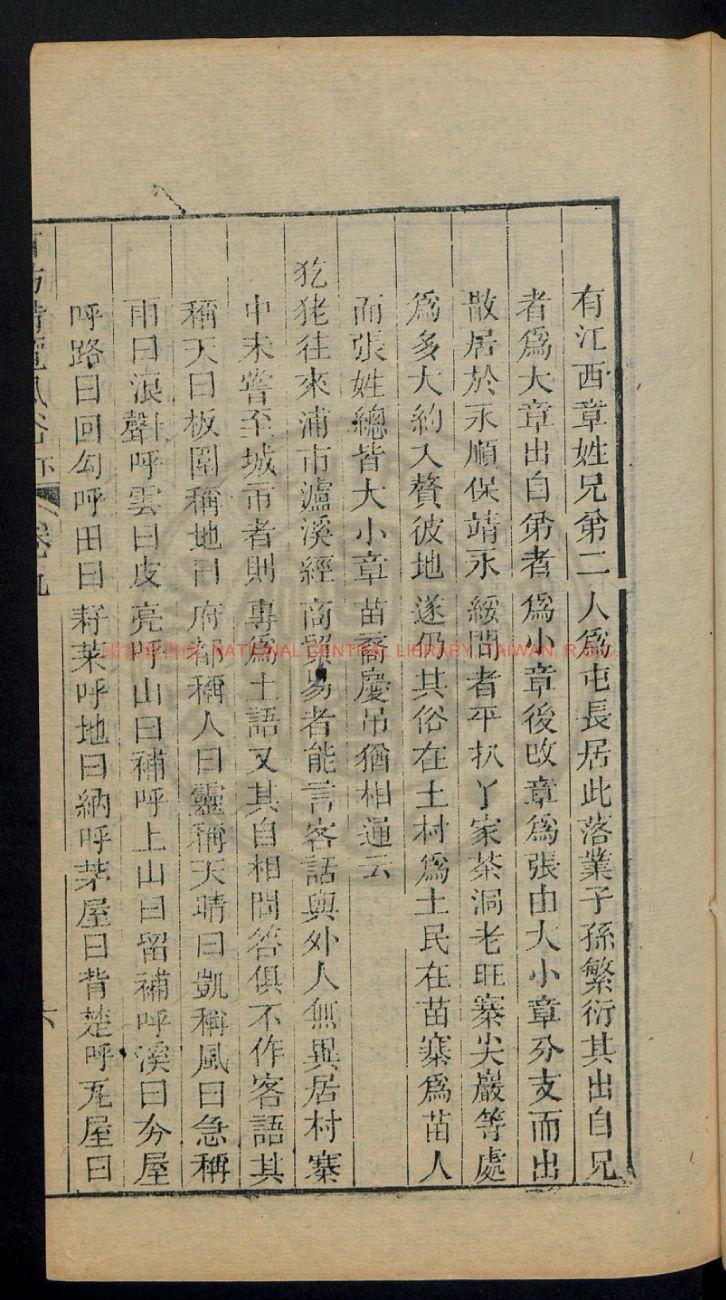 有江西章姓兄第二人爲屯長居此落業子孫繁衍其出自兄
者爲大章出自第者爲小章後改章爲張由大小章分支而出
散居於永順保靖永綏間者平扒丫家茶洞老旺寨尖巖等處
爲多大約入贅彼地遂仍其俗在土村爲土民在苗寨爲苗人
而張姓總皆大小章苗裔慶吊猶相通云
犵狫往來浦市瀘溪經商貿易者能言客話與外人無異居村寨
中未嘗至城市者則專爲土語又其自相問答俱不作客語其
稱天曰板圍稱地曰府都稱人曰靈稱天晴曰凱稱風曰急稱
雨曰浪聲呼雲曰皮亮呼山曰補呼上山曰留補呼溪曰夯屋
呼路曰回勾呼田曰耔萊呼地曰納呼茅屋曰背楚呼瓦屋曰
風俗下 卷九
六
國家圖書館 NATIONAL CENTRAL LIBRARY, TAIWAN, R.O.C.